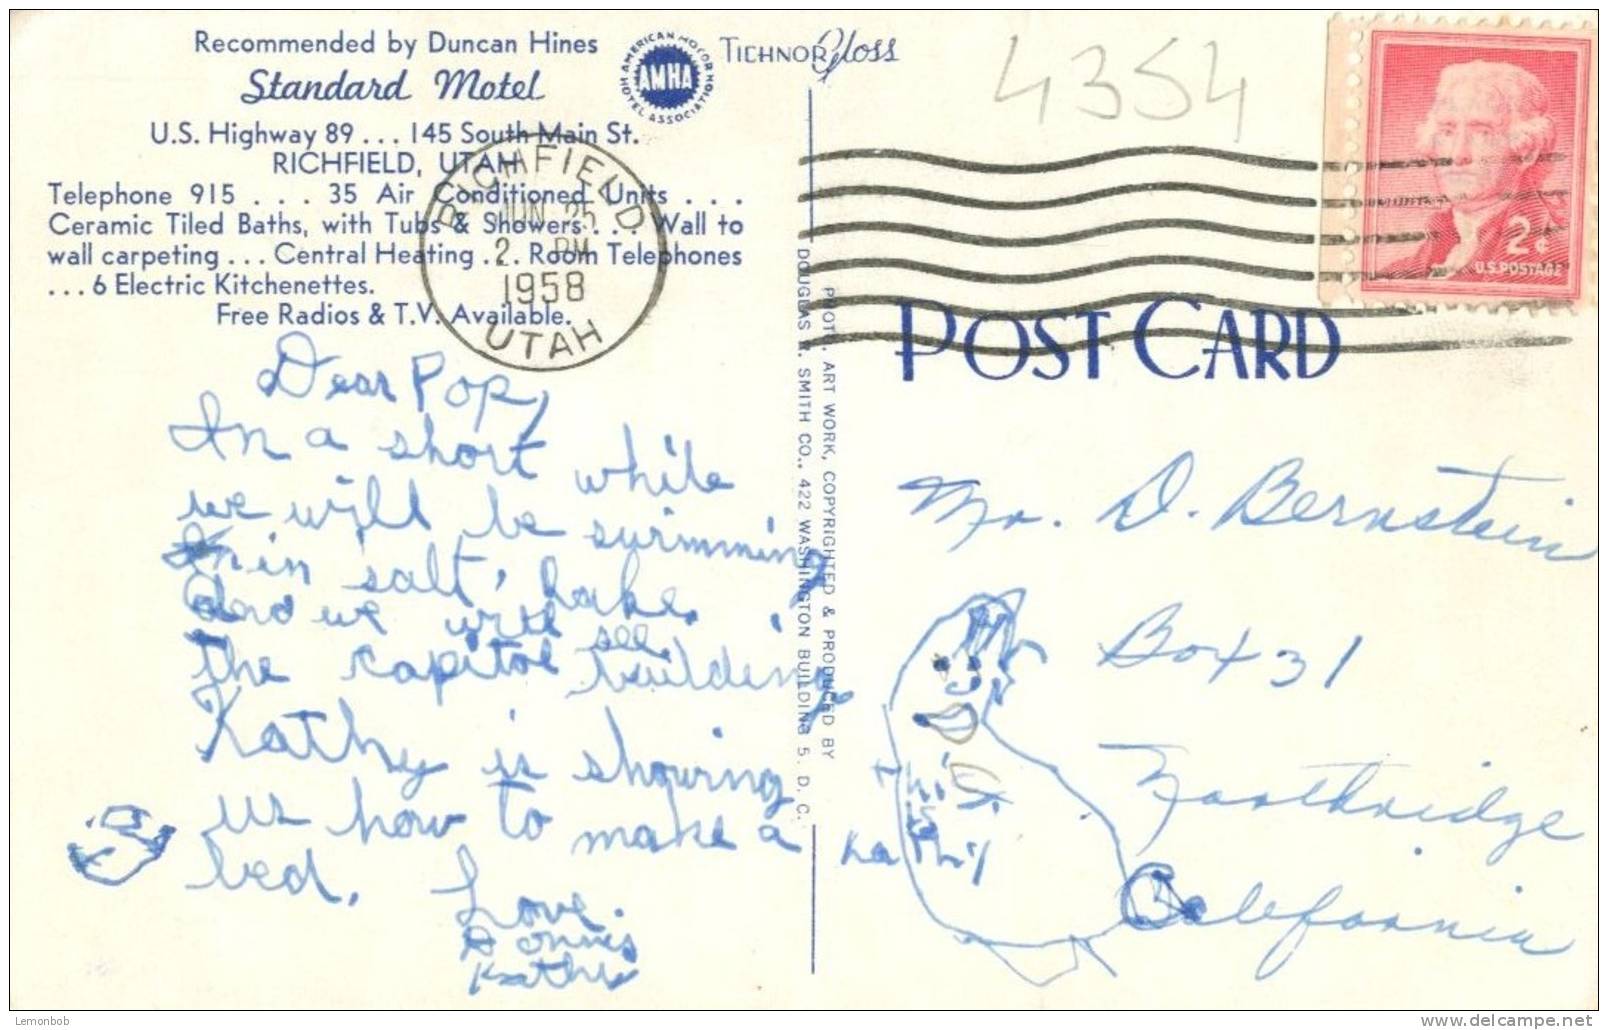 Recommended by Duncan Hines
Standard Motel
U.S. Highway 89 ... 145 South Main St.
RICHFIELD, UTAH
Telephone 915 . . . 35 Air Conditioned Units . . .
Ceramic Tiled Baths, with Tubs & Showers . . . Wall to
wall carpeting . . . Central Heating . . . Room Telephones
. . . 6 Electric Kitchenettes.
Free Radios & T.V. Available.
AMERICAN MOTOR HOTEL ASSOCIATION
AMHA
TICHNOR Gloss
4354
2¢
U.S. POSTAGE
RICHFIELD
JUN 25
2 PM
1958
UTAH
POST CARD
Dear Pop,
In a short while
we will be swimming
in salt, lake.
and we will see
the capitol building
Kathy is showing
us how to make a
bed.
Love.
Kathy
PHOTO, ART WORK, COPYRIGHTED & PRODUCED BY
DOUGLAS R. SMITH CO., 422 WASHINGTON BUILDING 5, D. C.
This
is
Kathy
Mr. D. Bernstein
Box 31
Northridge
California
Lemonbob
www.delcampe.net